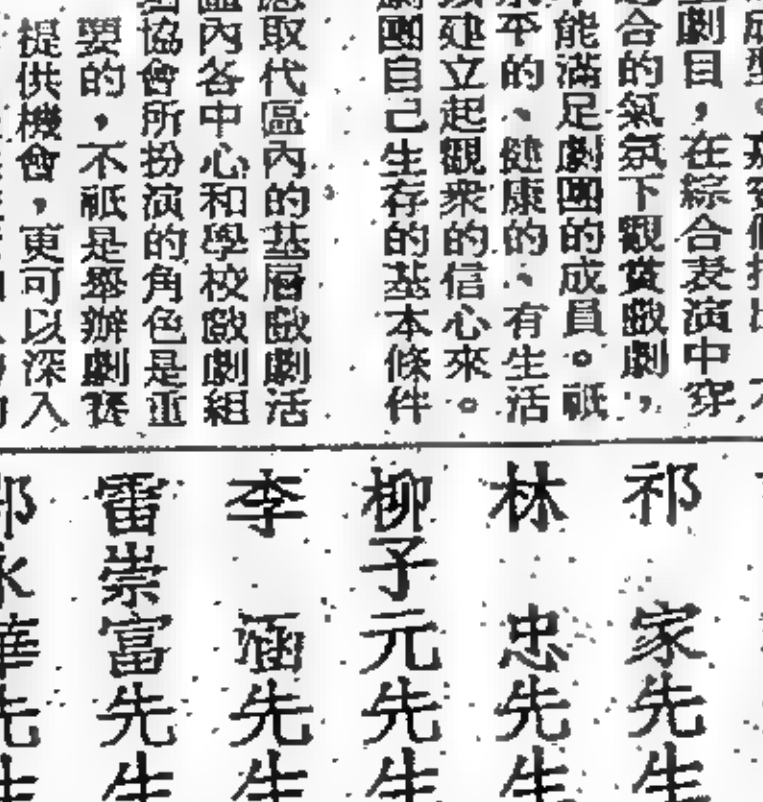 劇目，在綜合表演中穿
合的氣氛下觀賞戲劇，
能滿足劇團的成員。祇
平的、健康的、有生活
建立起觀眾的信心來。
劇團自己生存的基本條件
取代區內的基層戲劇活
區內各中心和學校戲劇組
協會所扮演的角色是重
要的，不祇是舉辦劇賽
提供機會，更可以深入
祁家先生
林忠先生
柳子元先生
李涵先生
雷崇富先生
華先生